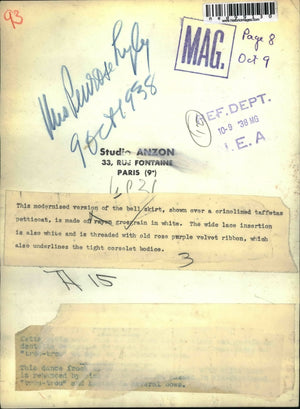 93
MAG.
Page 8
Oct 9
Mrs Penrose
9 Oct 1938
EF. DEPT.
10-9 '38 MG
E. A
Studio ANZON
33, RUE FONTAINE
PARIS (9e)
This modernised version of the bell skirt, shown over a crinolined taffetas
petticoat, is made of rayon grosgrain in white. The wide lace insertion
is also white and is threaded with old rose purple velvet ribbon, which
also underlines the tight corselet bodice.
3
15
"trou-tro
This dance frock
is
"trou-trou" and